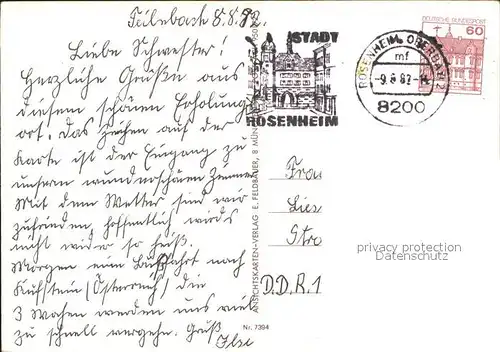 Feilnbach 8.8.82.
Liebe Schwester!
Herzliche Grüße aus
diesem schönen Erholungs
ort. Das zeichen auf der
Karte ist der Eingang zu
unserm wunderschönen Zimmer
Mit dem Wetter sind wir
zufrieden, hoffentlich wirds
nicht wider so heiß.
Morgen eine Busfahrt nach
Kufstein (Österreich) die
3 Wochen werden uns viel
zu schnell vergehn. Gruß
Ilse
STADT
ROSENHEIM
ANSICHTSKARTEN-VERLAG E. FELDBAUER, 8 MÜN
Nr. 7394
ROSENHEIM, OBERBAY 2
mf
-9.8.82-
8200
DEUTSCHE BUNDESPOST
60
Frau
Lies
Stro
D.D.R. 1
privacy protection
Datenschutz